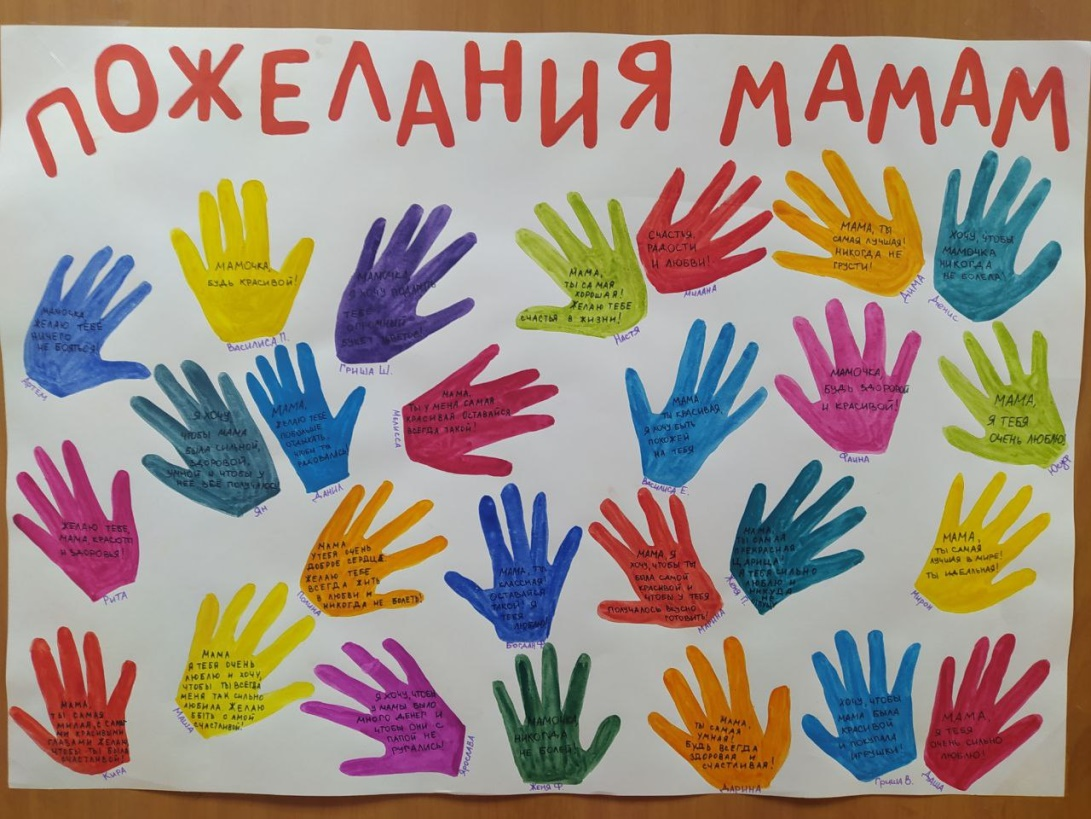 ПОЖЕЛАНИЯ МАМАМ
МАМОЧКА
ЖЕЛАЮ ТЕБЕ
НИЧЕГО
НЕ БОЯТЬСЯ!
АРТЕМ
МАМОЧКА,
БУДЬ КРАСИВОЙ!
ВАСИЛИСА П.
МАМОЧКА,
Я ХОЧУ ПОДАРИТЬ
ТЕБЕ
ОГРОМНЫЙ
БУКЕТ ЦВЕТОВ!
ГРИША Ш.
МАМА,
ТЫ САМАЯ
ХОРОШАЯ!
ЖЕЛАЮ ТЕБЕ
СЧАСТЬЯ В ЖИЗНИ!
НАСТЯ
СЧАСТЬЯ,
РАДОСТИ
И ЛЮБВИ!
МИЛАНА
МАМА, ТЫ
САМАЯ ЛУЧШАЯ!
НИКОГДА НЕ
ГРУСТИ!
ДИМА
ХОЧУ, ЧТОБЫ
МАМОЧКА
НИКОГДА
НЕ БОЛЕЛА
ДЕНИС
Я ХОЧУ
ЧТОБЫ МАМА
БЫЛА СИЛЬНОЙ,
ЗДОРОВОЙ,
УМНОЙ И ЧТОБЫ У
НЕЕ ВСЁ ПОЛУЧАЛОСЬ!
ЯН
МАМА,
ЖЕЛАЮ ТЕБЕ
ПОБОЛЬШЕ
ОТДЫХАТЬ
ТЫ
РАДОВАЛАСЬ!
ДАНИЛ
МАМА,
ТЫ У МЕНЯ САМАЯ
КРАСИВАЯ ОСТАВАЙСЯ
ВСЕГДА ТАКОЙ!
МЕЛИССА
МАМА
ТЫ КРАСИВАЯ,
Я ХОЧУ БЫТЬ
ПОХОЖЕЙ
НА ТЕБЯ
ВАСИЛИСА Е.
МАМОЧКА,
БУДЬ ЗДОРОВОЙ
И КРАСИВОЙ!
ФАИНА
МАМА,
Я ТЕБЯ
ОЧЕНЬ ЛЮБЛЮ!
ЖЕЛАЮ ТЕБЕ,
МАМА, КРАСОТЫ
И ЗДОРОВЬЯ!
РИТА
МАМА
У ТЕБЯ ОЧЕНЬ
ДОБРОЕ СЕРДЦЕ
ЖЕЛАЮ ТЕБЕ
ВСЕГДА ЖИТЬ
В ЛЮБВИ И
НИКОГДА НЕ БОЛЕТЬ!
ПОЛИНА
МАМА, ТЫ
КЛАССНАЯ!
ОСТАВАЙСЯ
ТАКОЙ! Я
ТЕБЯ
ЛЮБЛЮ!
БОГДАН Ф.
МАМА, Я
ХОЧУ, ЧТОБЫ ТЫ
БЫЛА САМОЙ
КРАСИВОЙ И
ЧТОБЫ У ТЕБЯ
ПОЛУЧАЛОСЬ ВКУСНО
ГОТОВИТЬ!
МАРИНА
МАМА,
ТЫ САМАЯ
ПРЕКРАСНАЯ
ЦАРИЦА!
Я ТЕБЯ СИЛЬНО
ЛЮБЛЮ И
НИКУДА
НЕ
ЖЕНЯ П.
МАМА,
ТЫ САМАЯ
ЛУЧШАЯ В МИРЕ!
ТЫ ИДЕАЛЬНАЯ!
МИРОН
МАМА,
ТЫ САМАЯ
МИЛАЯ, С САМЫ
МИ КРАСИВЫМИ
ГЛАЗАМИ ЖЕЛАЮ,
ЧТОБЫ ТЫ БЫЛА
СЧАСТЛИВОЙ!
КИРА
МАМА
Я ТЕБЯ ОЧЕНЬ
ЛЮБЛЮ И ХОЧУ,
ЧТОБЫ ТЫ ВСЕГДА
МЕНЯ ТАК СИЛЬНО
ЛЮБИЛА ЖЕЛАЮ
БЫТЬ САМОЙ
СЧАСТЛИВОЙ!
МАША
Я ХОЧУ, ЧТОБЫ
У МАМЫ БЫЛО
МНОГО ДЕНЕГ И
ЧТОБЫ ОНИ С
ПАПОЙ НЕ
РУГАЛИСЬ!
ЯРОСЛАВА
МАМОЧКА,
НИКОГДА
НЕ БОЛЕЙ!
ЖЕНЯ Ф.
МАМА,
ТЫ САМАЯ
УМНАЯ!
БУДЬ ВСЕГДА
ЗДОРОВАЯ И
СЧАСТЛИВАЯ!
ДАРЫНА
ХОЧУ, ЧТОБЫ
МАМА БЫЛА
КРАСИВОЙ
И ПОКУПАЛА
ИГРУШКИ!
ГРИША В.
МАМА,
Я ТЕБЯ
ОЧЕНЬ СИЛЬНО
ЛЮБЛЮ!
ДАША